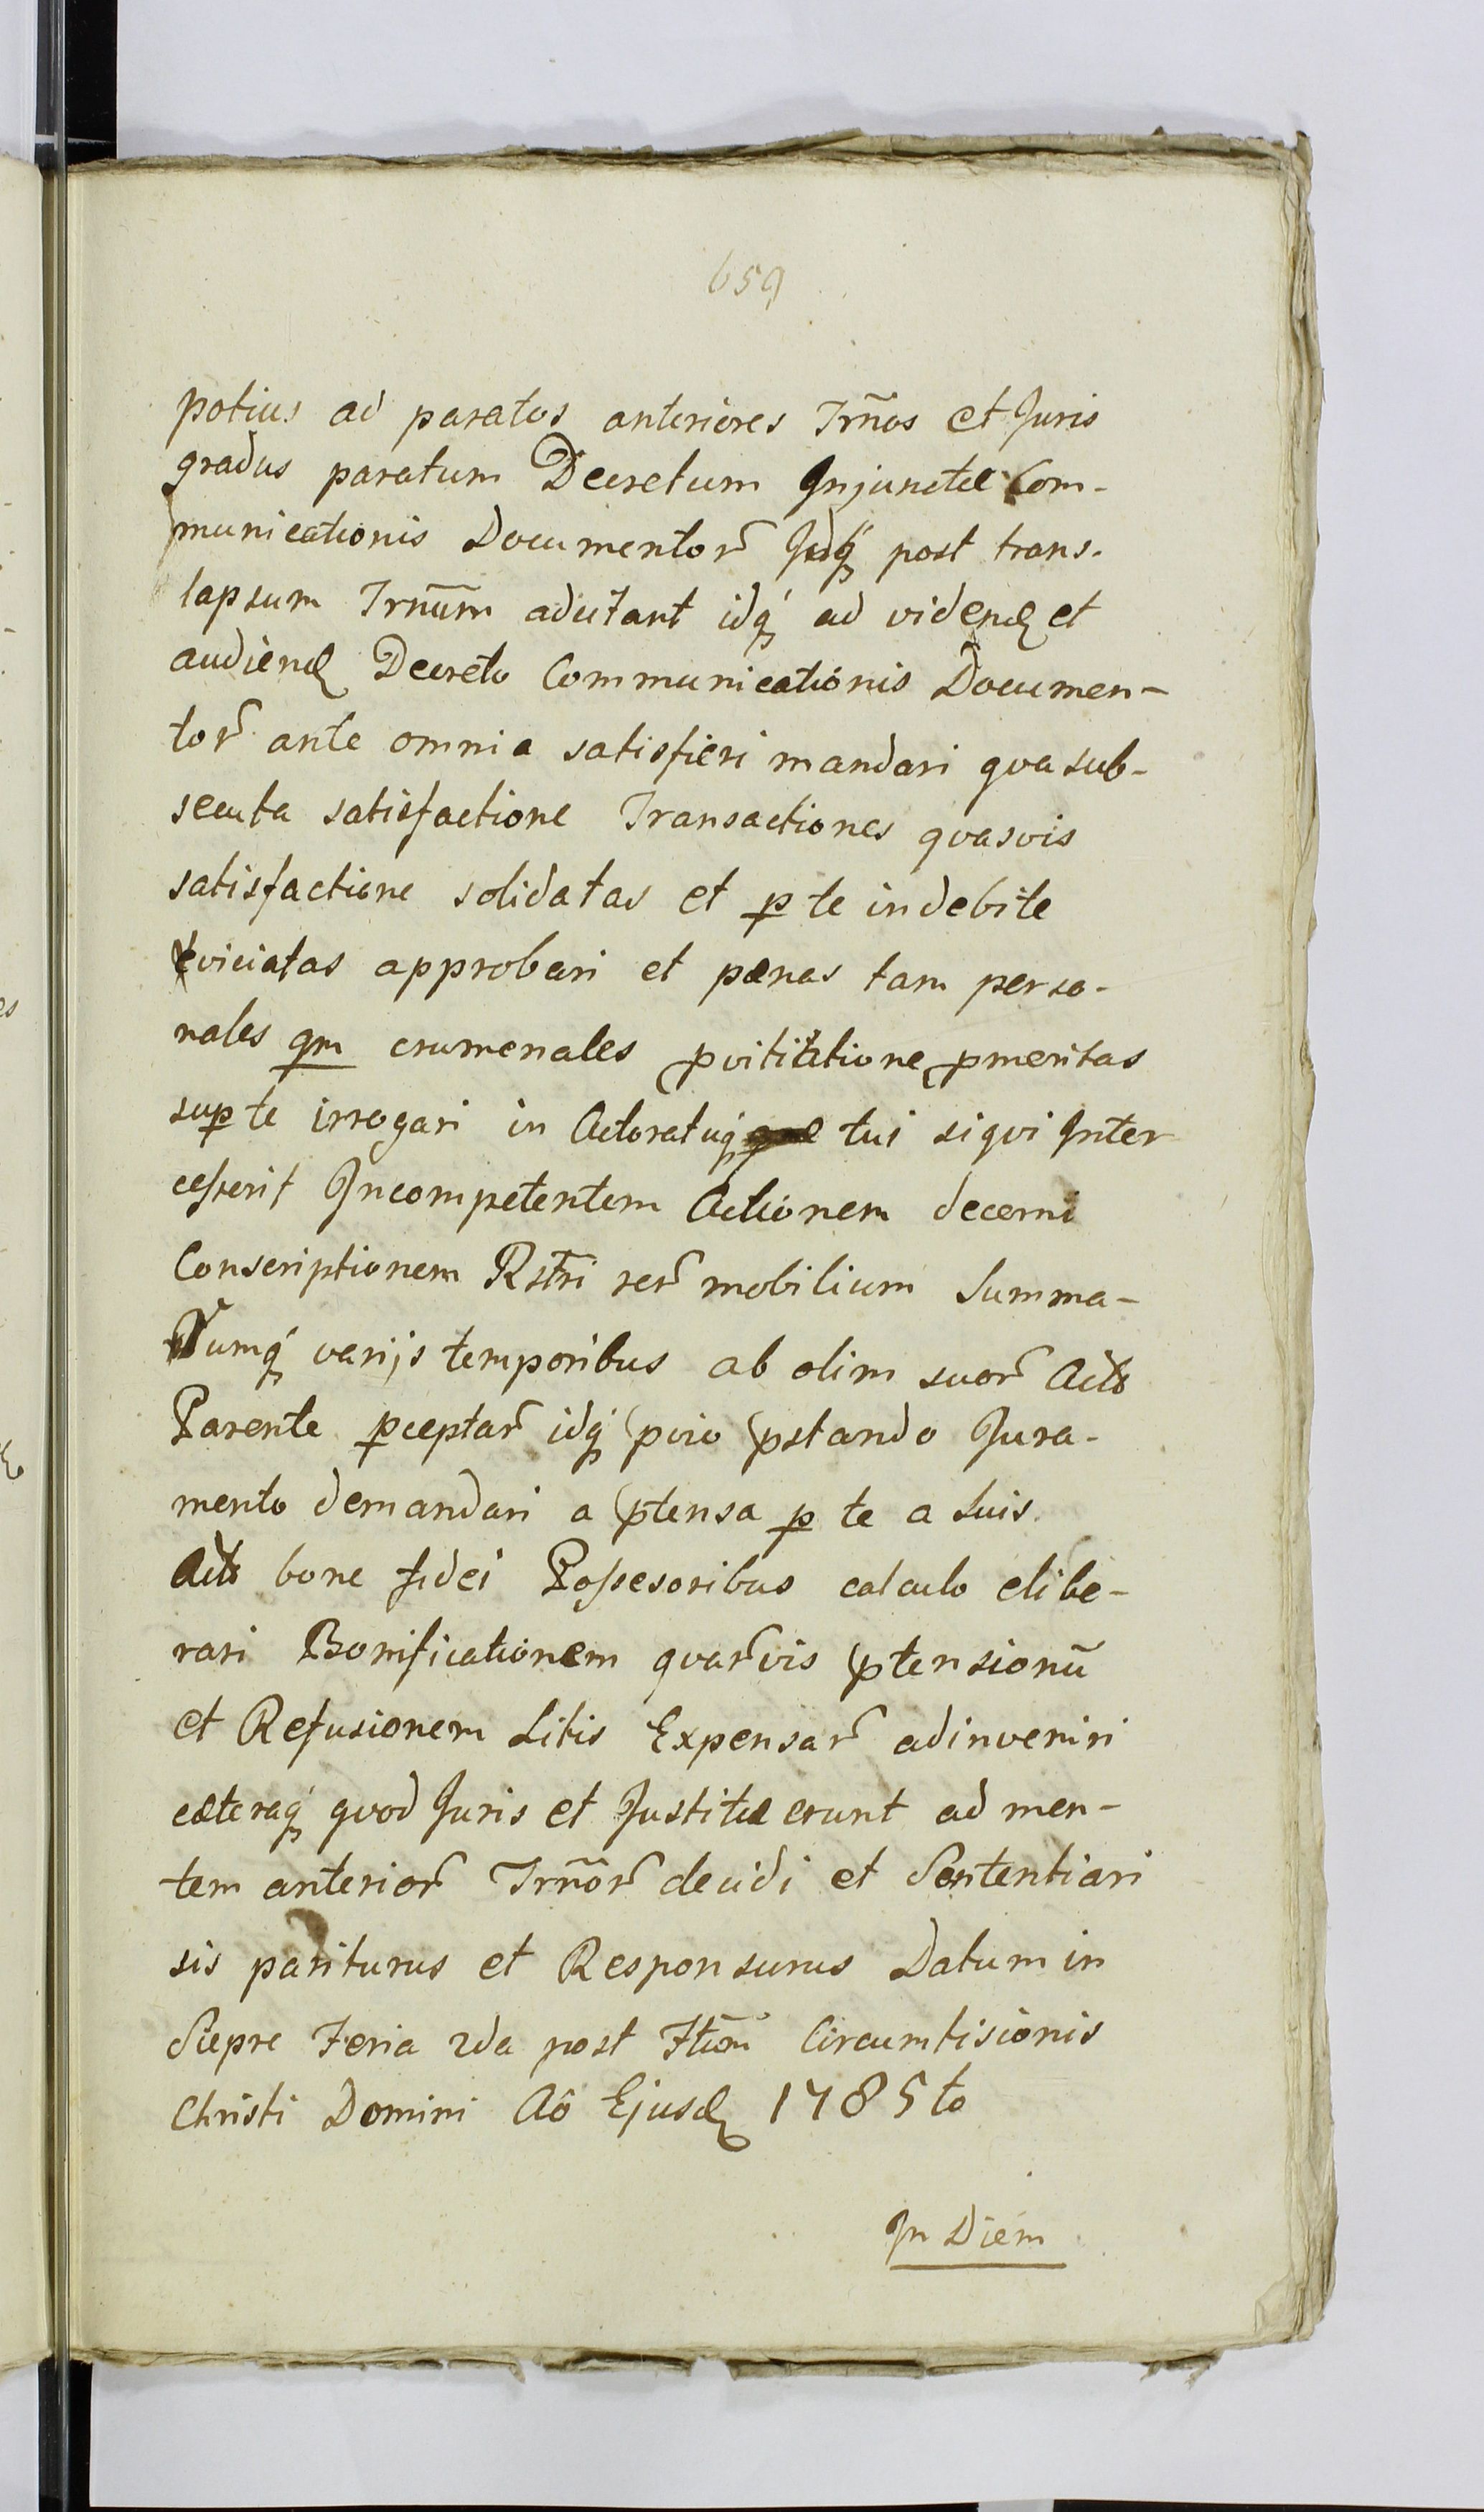 659
potius ad paratos anteriores Trños et Juris
gradus paratum Decretum Injunctæ Com-
municationis Documentor̃ Idq́ post trans-
lapsum Trnũm adcitant idq́ ad videnđ et
audienđ Decreto Communicationis Documen-
tor̃ ante omnia satisfieri mandari qva sub-
secuta satisfactione Transactiones qvasvis
satisfactione solidatas et p te indebite
eviciatas approbari et pænas tam perso-
nales qm crumenales pvititatione pmeritas
sup te irrogari in Actoratuq́ tui siqvi Inter
cesserit Incompetentem Actionem decerni
Conscriptionem Rstri rer̃ mobilium Summa-
rumq́ varijs temporibus ab olim suor̃ Actõ
Parente pceptar̃ idq́ pvio pstando Jura-
mento demandari a ptensa p te a suis
Actõ bone fidei Possesoribus calculo elibe-
rari Bonificationem qvar̃vis ptensionũ
et Refusionem Litis Expensar̃ adinveniri
cæteraq́ qvod Juris et Justitiæ erunt ad men-
tem anterior̃ Trñor̃ decidi et Sententiari
sis pariturus et Responsurus Datum in
Sicpre Feria 2da post Ftũm Circumtisionis
Christi Domini Aô Ejusđ 1785to
In Diem